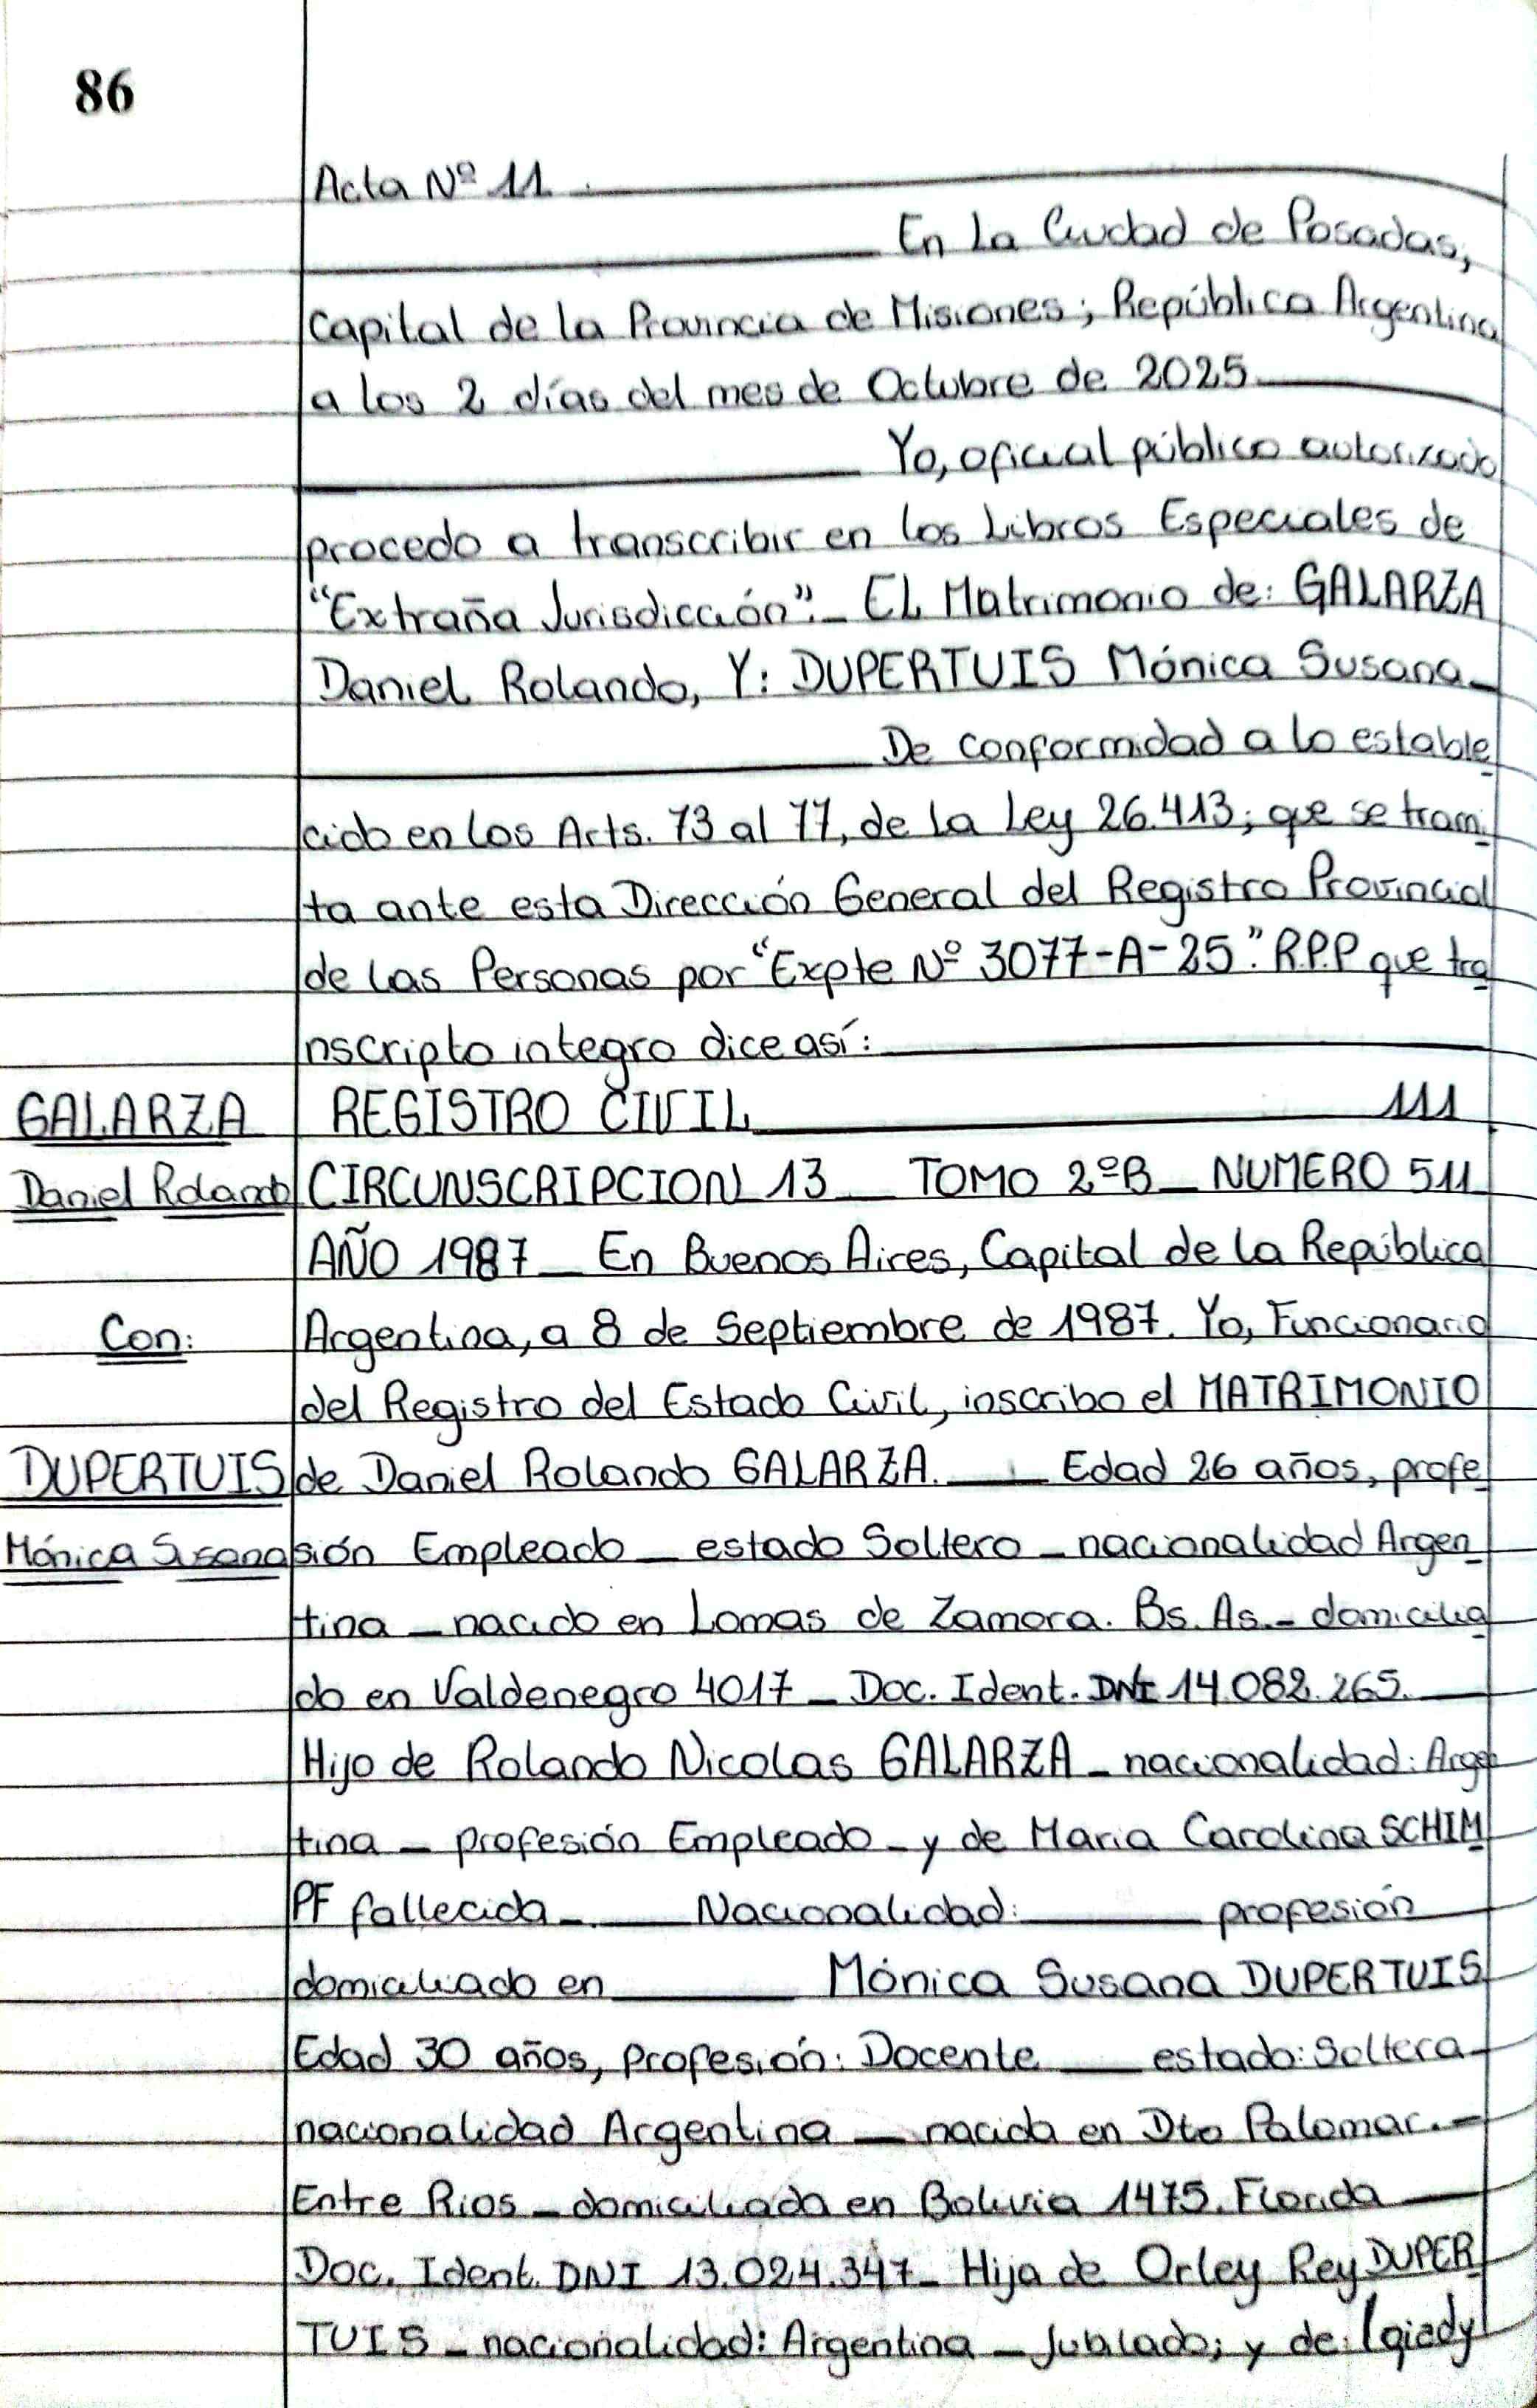 86
Acta Nº 11
En La Ciudad de Posadas,
Capital de la Provincia de Misiones; República Argentina
a los 2 días del mes de Octubre de 2025
Yo, oficial público autorizado
procedo a transcribir en los Libros Especiales de
"Extraña Jurisdicción". EL Matrimonio de: GALARZA
Daniel Rolando, Y: DUPERTUIS Mónica Susana
De conformidad a lo estable
cido en los Arts. 73 al 77, de la Ley 26.413; que se trami
ta ante esta Dirección General del Registro Provincial
de las Personas por "Expte Nº 3077-A-25". R.P.P que tra
nscripto integro dice así:
GALARZA REGISTRO CIVIL 111
Daniel Rolando CIRCUNSCRIPCION 13 TOMO 2ºB NUMERO 511
AÑO 1987 En Buenos Aires, Capital de la República
Con: Argentina, a 8 de Septiembre de 1987. Yo, Funcionario
del Registro del Estado Civil, inscribo el MATRIMONIO
DUPERTUIS de Daniel Rolando GALARZA. Edad 26 años, profe
Mónica Susana sión Empleado estado Soltero nacionalidad Argen
tina nacido en Lomas de Zamora. Bs. As. domicilia
do en Valdenegro 4017 Doc. Ident. DNI 14.082.265.
Hijo de Rolando Nicolas GALARZA nacionalidad: Argen
tina profesión Empleado y de Maria Carolina SCHIM
PF fallecida Nacionalidad: profesión
domiciliado en Mónica Susana DUPERTUIS
Edad 30 años, profesión: Docente estado: Soltera
nacionalidad Argentina nacida en Dto Palomar.
Entre Rios domiciliada en Bolivia 1475. Florida
Doc. Ident. DNI 13.024.347 Hija de Orley Rey DUPER
TUIS nacionalidad: Argentina Jubilado; y de: